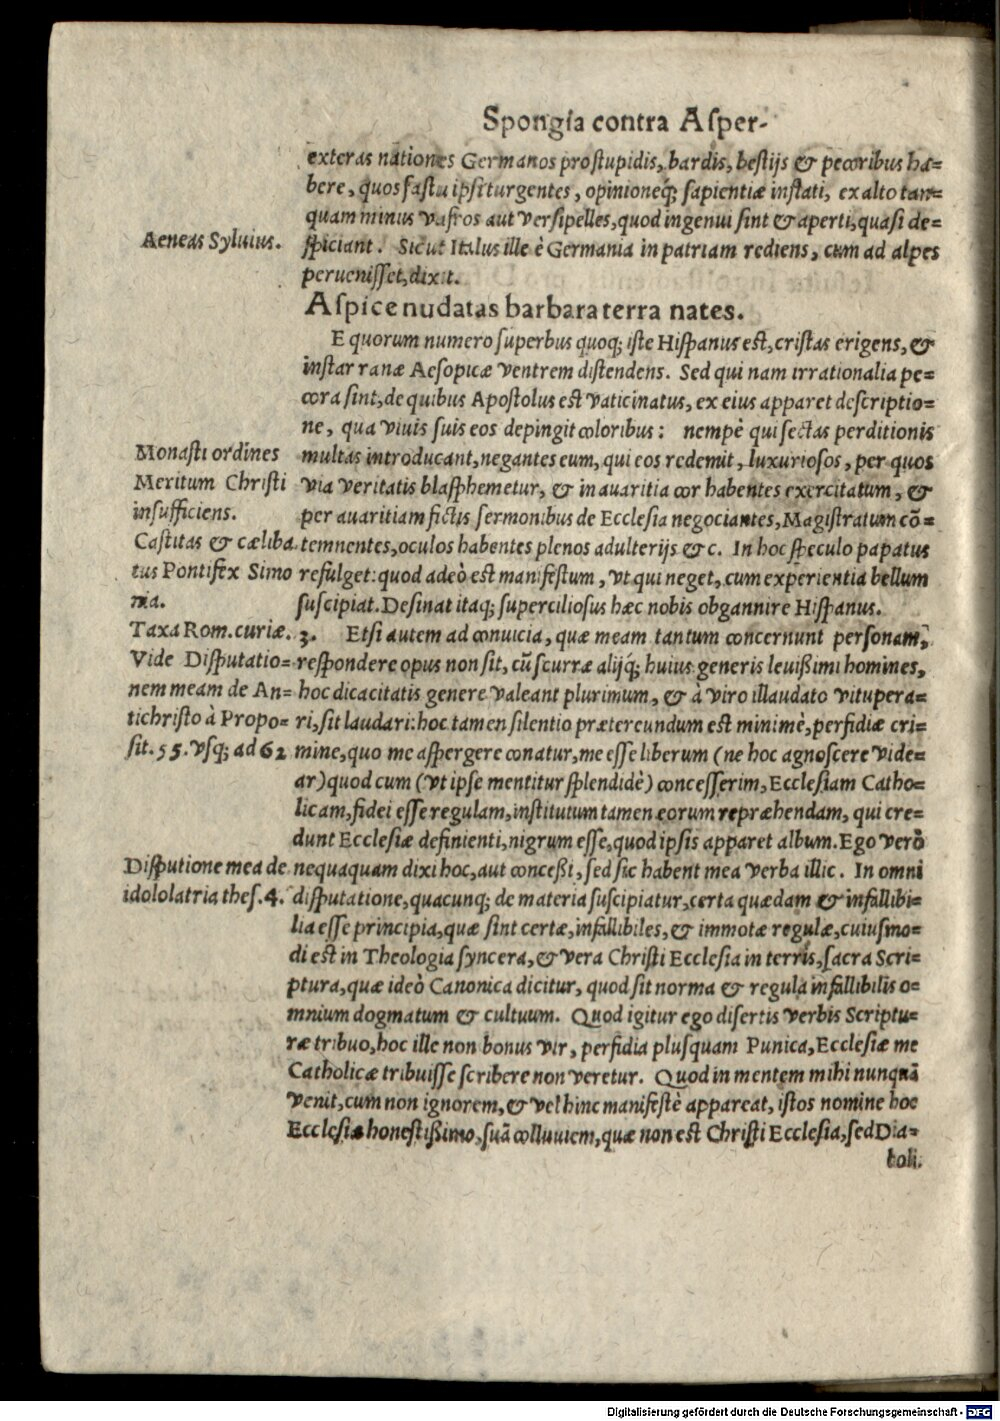 Spongia contra Aſper-
exteras nationes Germanos pro ſtupidis, bardis, beſtijs & pecoribus ha=
bere, quos faſtu ipſi turgentes, opinioneq́; ſapientiæ inflati, ex alto tan=
quam minus vafros aut verſipelles, quod ingenui ſint & aperti, quaſi de=
Aeneas Sylvius.
ſpiciant. Sicut Italus ille è Germania in patriam rediens, cum ad alpes
perueniſſet, dixit.
Aſpice nudatas barbara terra nates.
E quorum numero ſuperbus quoq; iſte Hiſpanus eſt, criſtas erigens, &
inſtar ranæ Aeſopicæ ventrem diſtendens. Sed qui nam irrationalia pe=
cora ſint, de quibus Apoſtolus eſt vaticinatus, ex eius apparet deſcriptio=
ne, qua viuis ſuis eos depingit coloribus: nempè qui ſectas perditionis
Monaſti ordines
multas introducant, negantes eum, qui eos redemit, luxurioſos, per quos
Meritum Chriſti
via veritatis blaſphemetur, & in auaritia cor habentes exercitatum, &
inſufficiens.
per auaritiam fictis ſermonibus de Eccleſia negociantes, Magiſtratum cõ=
Caſtitas & cæliba
temnentes, oculos habentes plenos adulterijs & c. In hoc ſpeculo papatus
tus Pontifex Simo
refulget: quod adeò eſt manifeſtum, vt qui neget, cum experientia bellum
nia.
ſuſcipiat. Deſinat itaq; ſupercilioſus hæc nobis obgannire Hiſpanus.
Taxa Rom. curiæ.
3. Etſi autem ad conuicia, quæ meam tantum concernunt perſonam,
Vide Diſputatio=
reſpondere opus non ſit, cũ ſcurræ alijq́; huius generis leuißimi homines,
nem meam de An=
hoc dicacitatis genere valeant plurimum, & à viro illaudato vitupera=
tichriſto à Propo=
ri, ſit laudari: hoc tamen ſilentio prætereundum eſt minimè, perfidiæ cri=
ſit. 55. vſq; ad 62
mine, quo me aſpergere conatur, me eſſe liberum (ne hoc agnoſcere vide=
ar) quod cum (vt ipſe mentitur ſplendidè) conceſſerim, Eccleſiam Catho=
licam, fidei eſſe regulam, inſtitutum tamen eorum repræhendam, qui cre=
dunt Eccleſiæ definienti, nigrum eſſe, quod ipſis apparet album. Ego verò
Diſputione mea de
nequaquam dixi hoc, aut conceßi, ſed ſic habent mea verba illic. In omni
idololatria theſ. 4.
diſputatione, quacunq; de materia ſuſcipiatur, certa quædam & infallibi=
lia eſſe principia, quæ ſint certæ, infallibiles, & immotæ regulæ, cuiuſmo=
di eſt in Theologia ſyncera, & vera Chriſti Eccleſia in terris, ſacra Scri=
ptura, quæ ideò Canonica dicitur, quod ſit norma & regula infallibilis o=
mnium dogmatum & cultuum. Quod igitur ego diſertis verbis Scriptu=
ræ tribuo, hoc ille non bonus vir, perfidia pluſquam Punica, Eccleſiæ me
Catholicæ tribuiſſe ſcribere non veretur. Quod in mentem mihi nunquã
venit, cum non ignorem, & vel hinc manifeſtè appareat, iſtos nomine hoc
Eccleſiæ honeſtißimo, ſuã colluuiem, quæ non eſt Chriſti Eccleſia, ſed Dia=
boli.
Digitalisierung gefördert durch die Deutsche Forschungsgemeinschaft - DFG